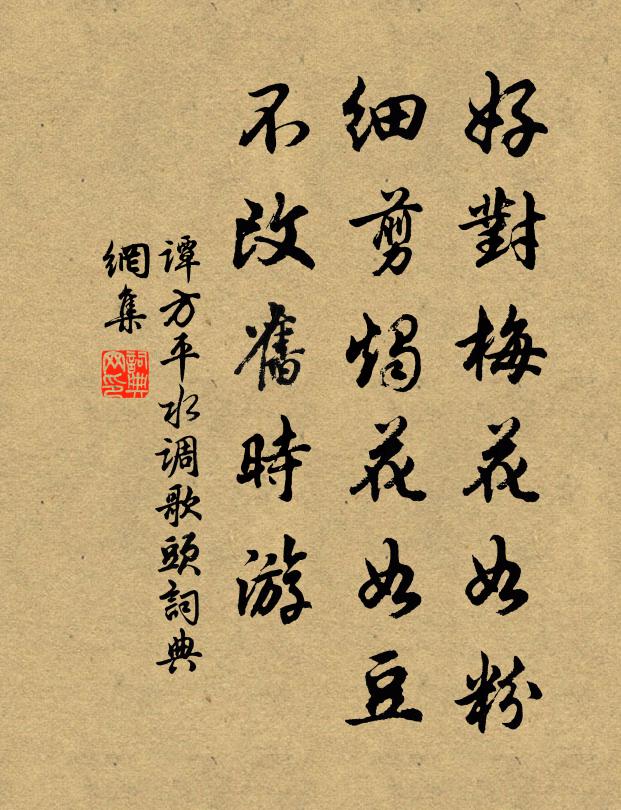 好對梅花如粉
細剪燭花如豆
不改舊時游
谭方平水调歌頭詞典
網集
詞典
网印